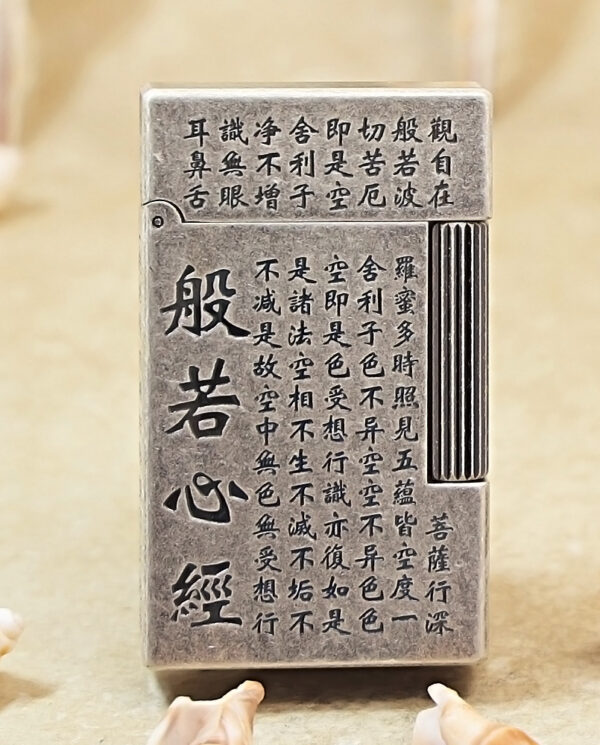 觀自在菩薩行深
般若波羅蜜多時照見五蘊皆空度一
切苦厄舍利子色不异空空不异色色
即是空空即是色受想行識亦復如是
舍利子是諸法空相不生不滅不垢不
净不增不减是故空中無色無受想行
識無眼
耳鼻舌
般若心經